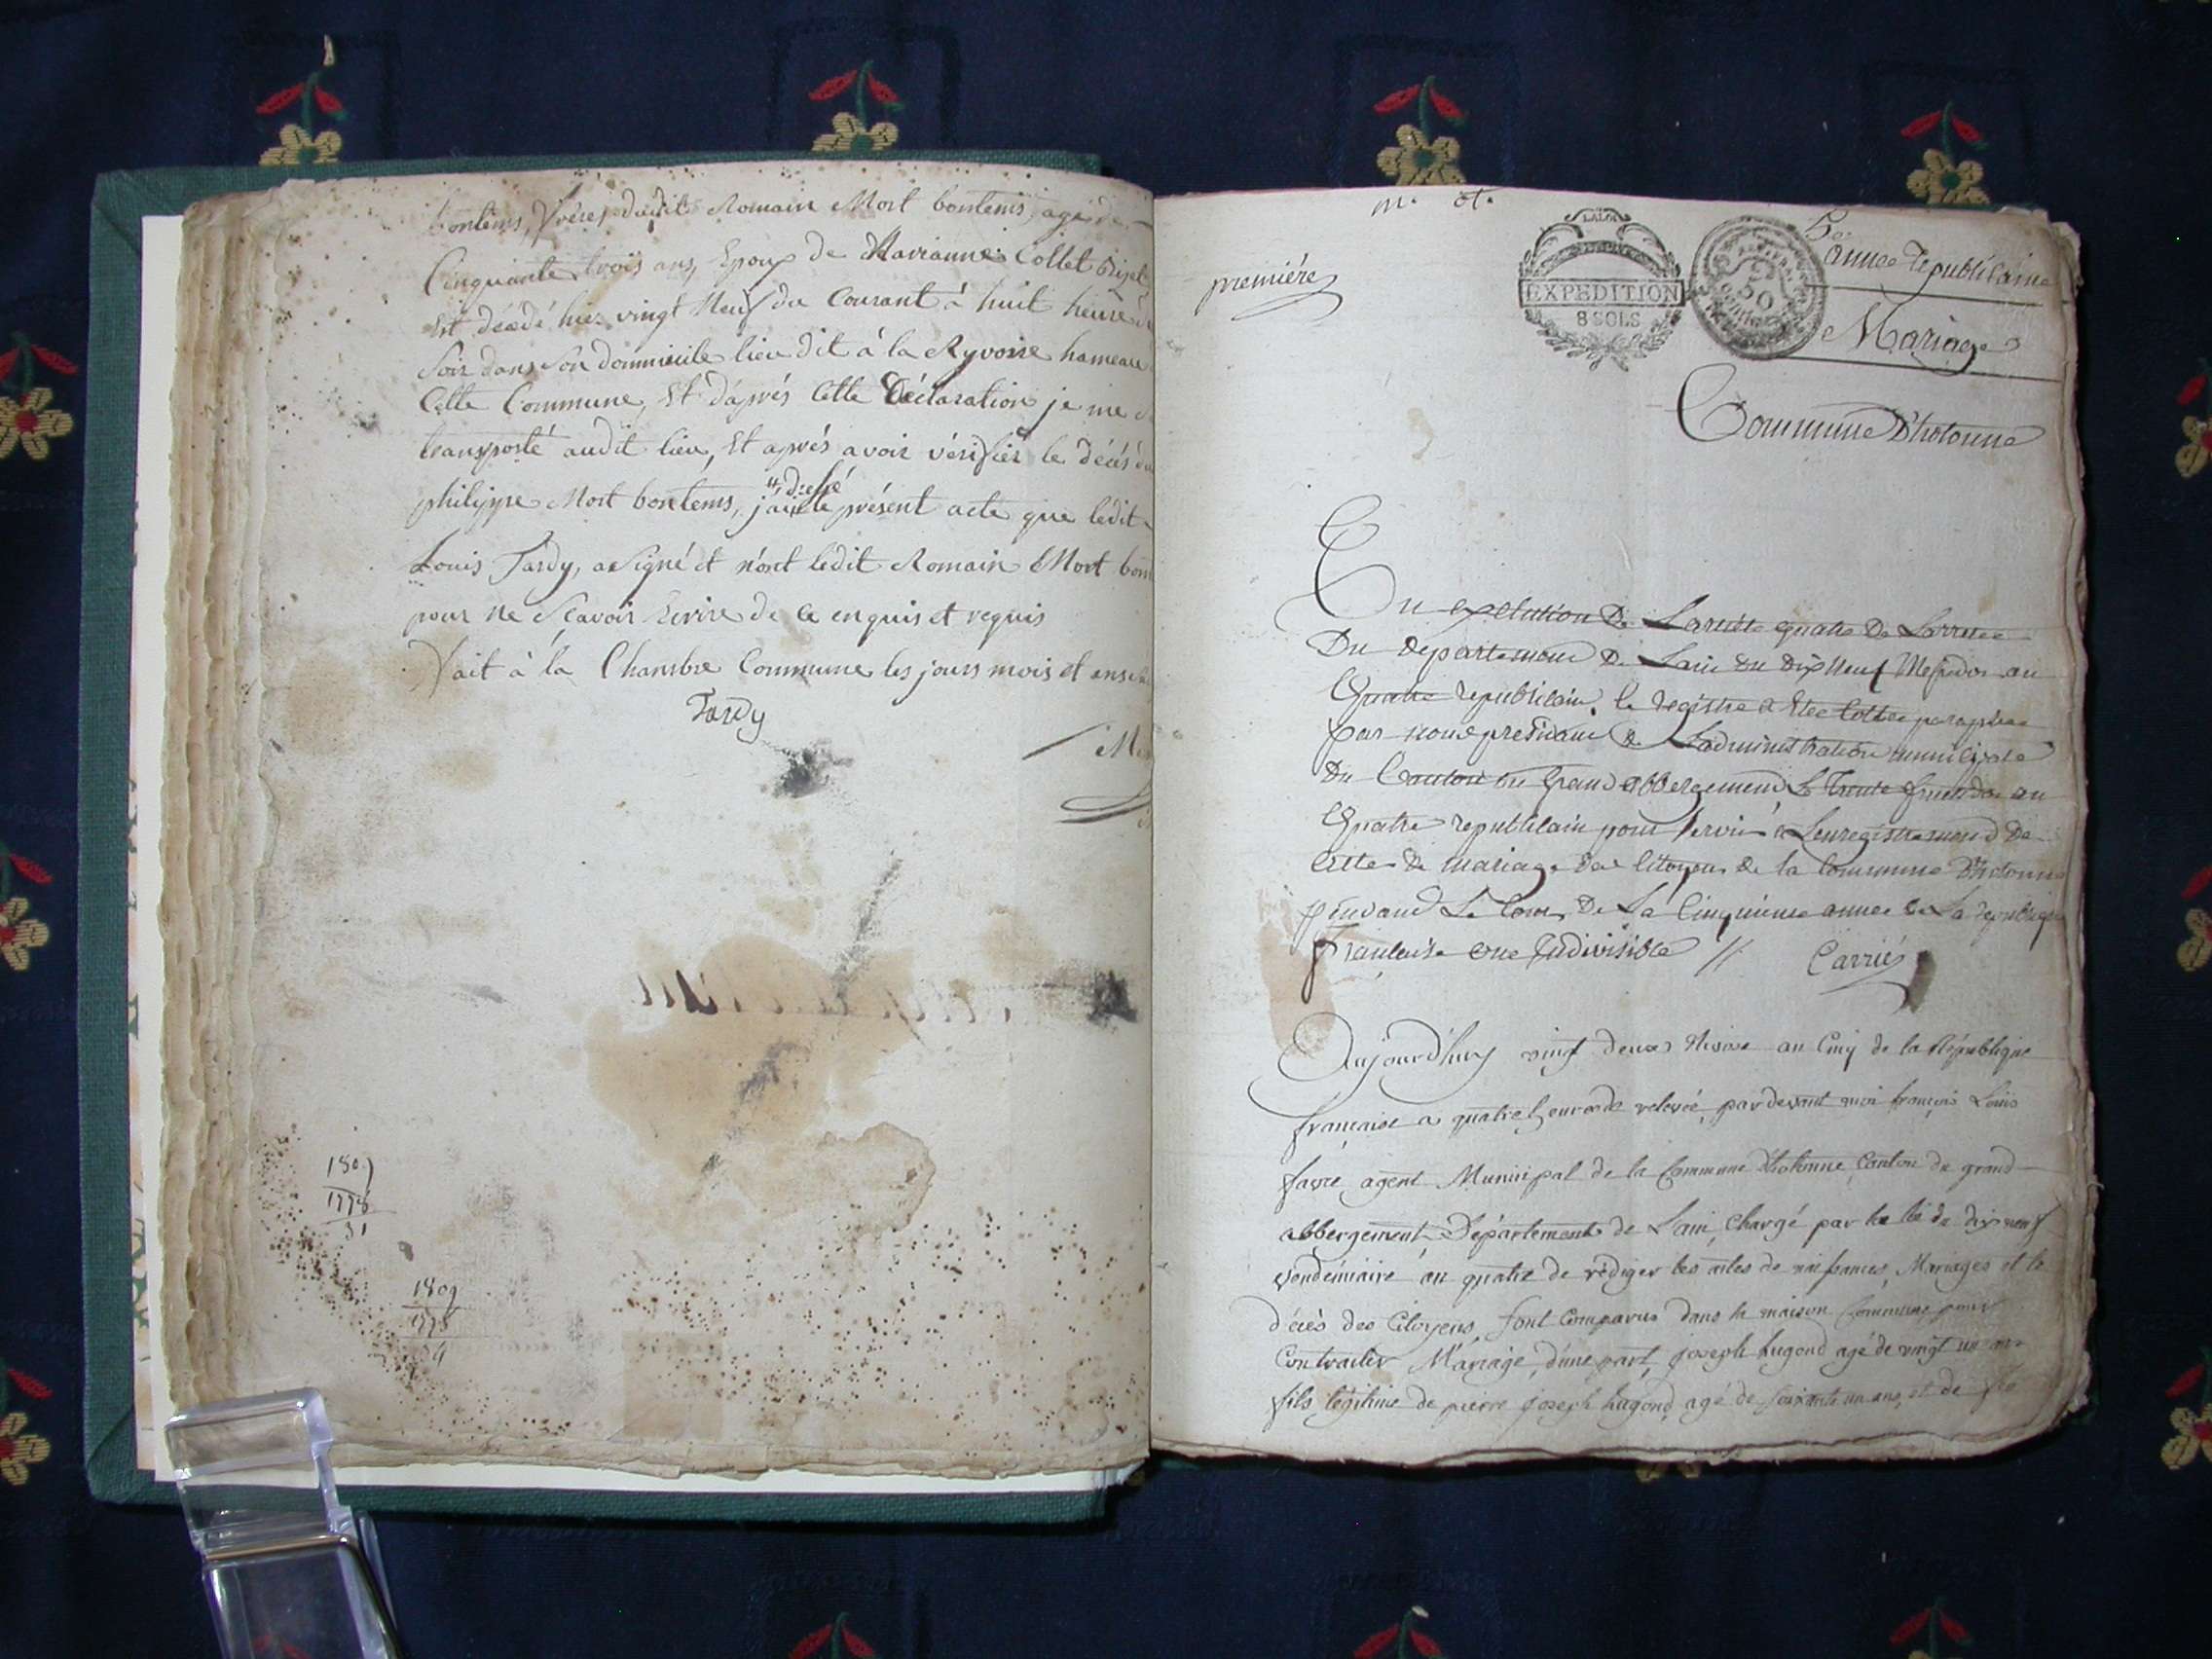 bontems, frère dudit Romain Mort bontems, agé de
Cinquante trois ans, Epoux de Marianne Collet
Est décédé hier vingt Neuf du Courant à huit heure
Soir dans Son dommicile lieu dit à la Ryvoire hameau
Cette Commune, Et d'après Cette Déclaration je me
transporté audit lieu, Et après avoir vérifier le décès
philippe Mort bontems, j'ai dressé le présent acte que ledit
Louis Tardy, a Signé et n'ont ledit Romain Mort
pour ne Scavoir Ecrire de ce enquis et requis
Fait à la Chambre Commune les jours mois et
Tardy
1809
1778
31
1809
1778
première
LA LOI
EXPEDITION
8 SOLS
50
5e.
année republicaine
Mariage
Commune D'hotonne
En execution De Larticle quatre De Larrete
Du Departement De Lain du Dix Neuf Messidor an
Quatre republicain, le registre a Etee Cottee paraphee
par nous president De Ladministration municipale
Du Canton du Grand abbergement Le Trente fructidor an
Quatre republicain pour Servir à Lenregistrement De
actes De mariage des Citoyens de la Commune D'hotonne
pendant Le Cours De La Cinquieme annee De La republique
Francaise une Indivisible // Carrié
Aujourd'huy vingt deux Nivose an Cinq de la République
française a quatre heures de relevée, pardevant moi françois Louis
favre agent Municipal de la Commune d'hotonne, Canton de grand
abbergement, Département de Lain, Chargé par la loi du dix neuf
vendémiaire an quatre de rédiger les actes de naissances, Mariages et le
décès des Citoyens, Sont Comparus dans la maison Commune pour
Contracter Mariage, d'une part, joseph hugond agé de vingt un ans
fils légitime de pierre joseph hugond, agé de Soixante un ans, et de